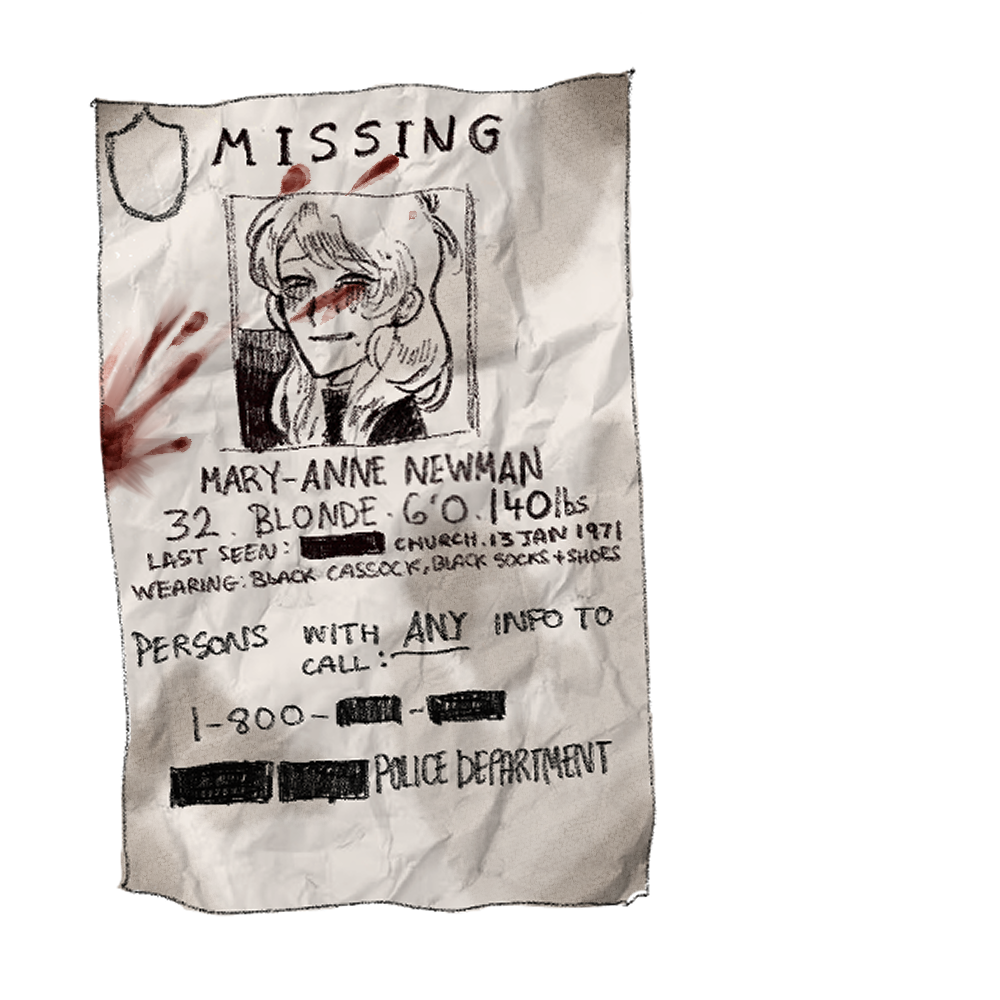 MISSING
MARY-ANNE NEWMAN
32. BLONDE. 6'0. 140lbs
LAST SEEN: CHURCH. 13 JAN 1971
WEARING: BLACK CASSOCK, BLACK SOCKS + SHOES
PERSONS WITH ANY INFO TO
CALL:
1-800- -
POLICE DEPARTMENT